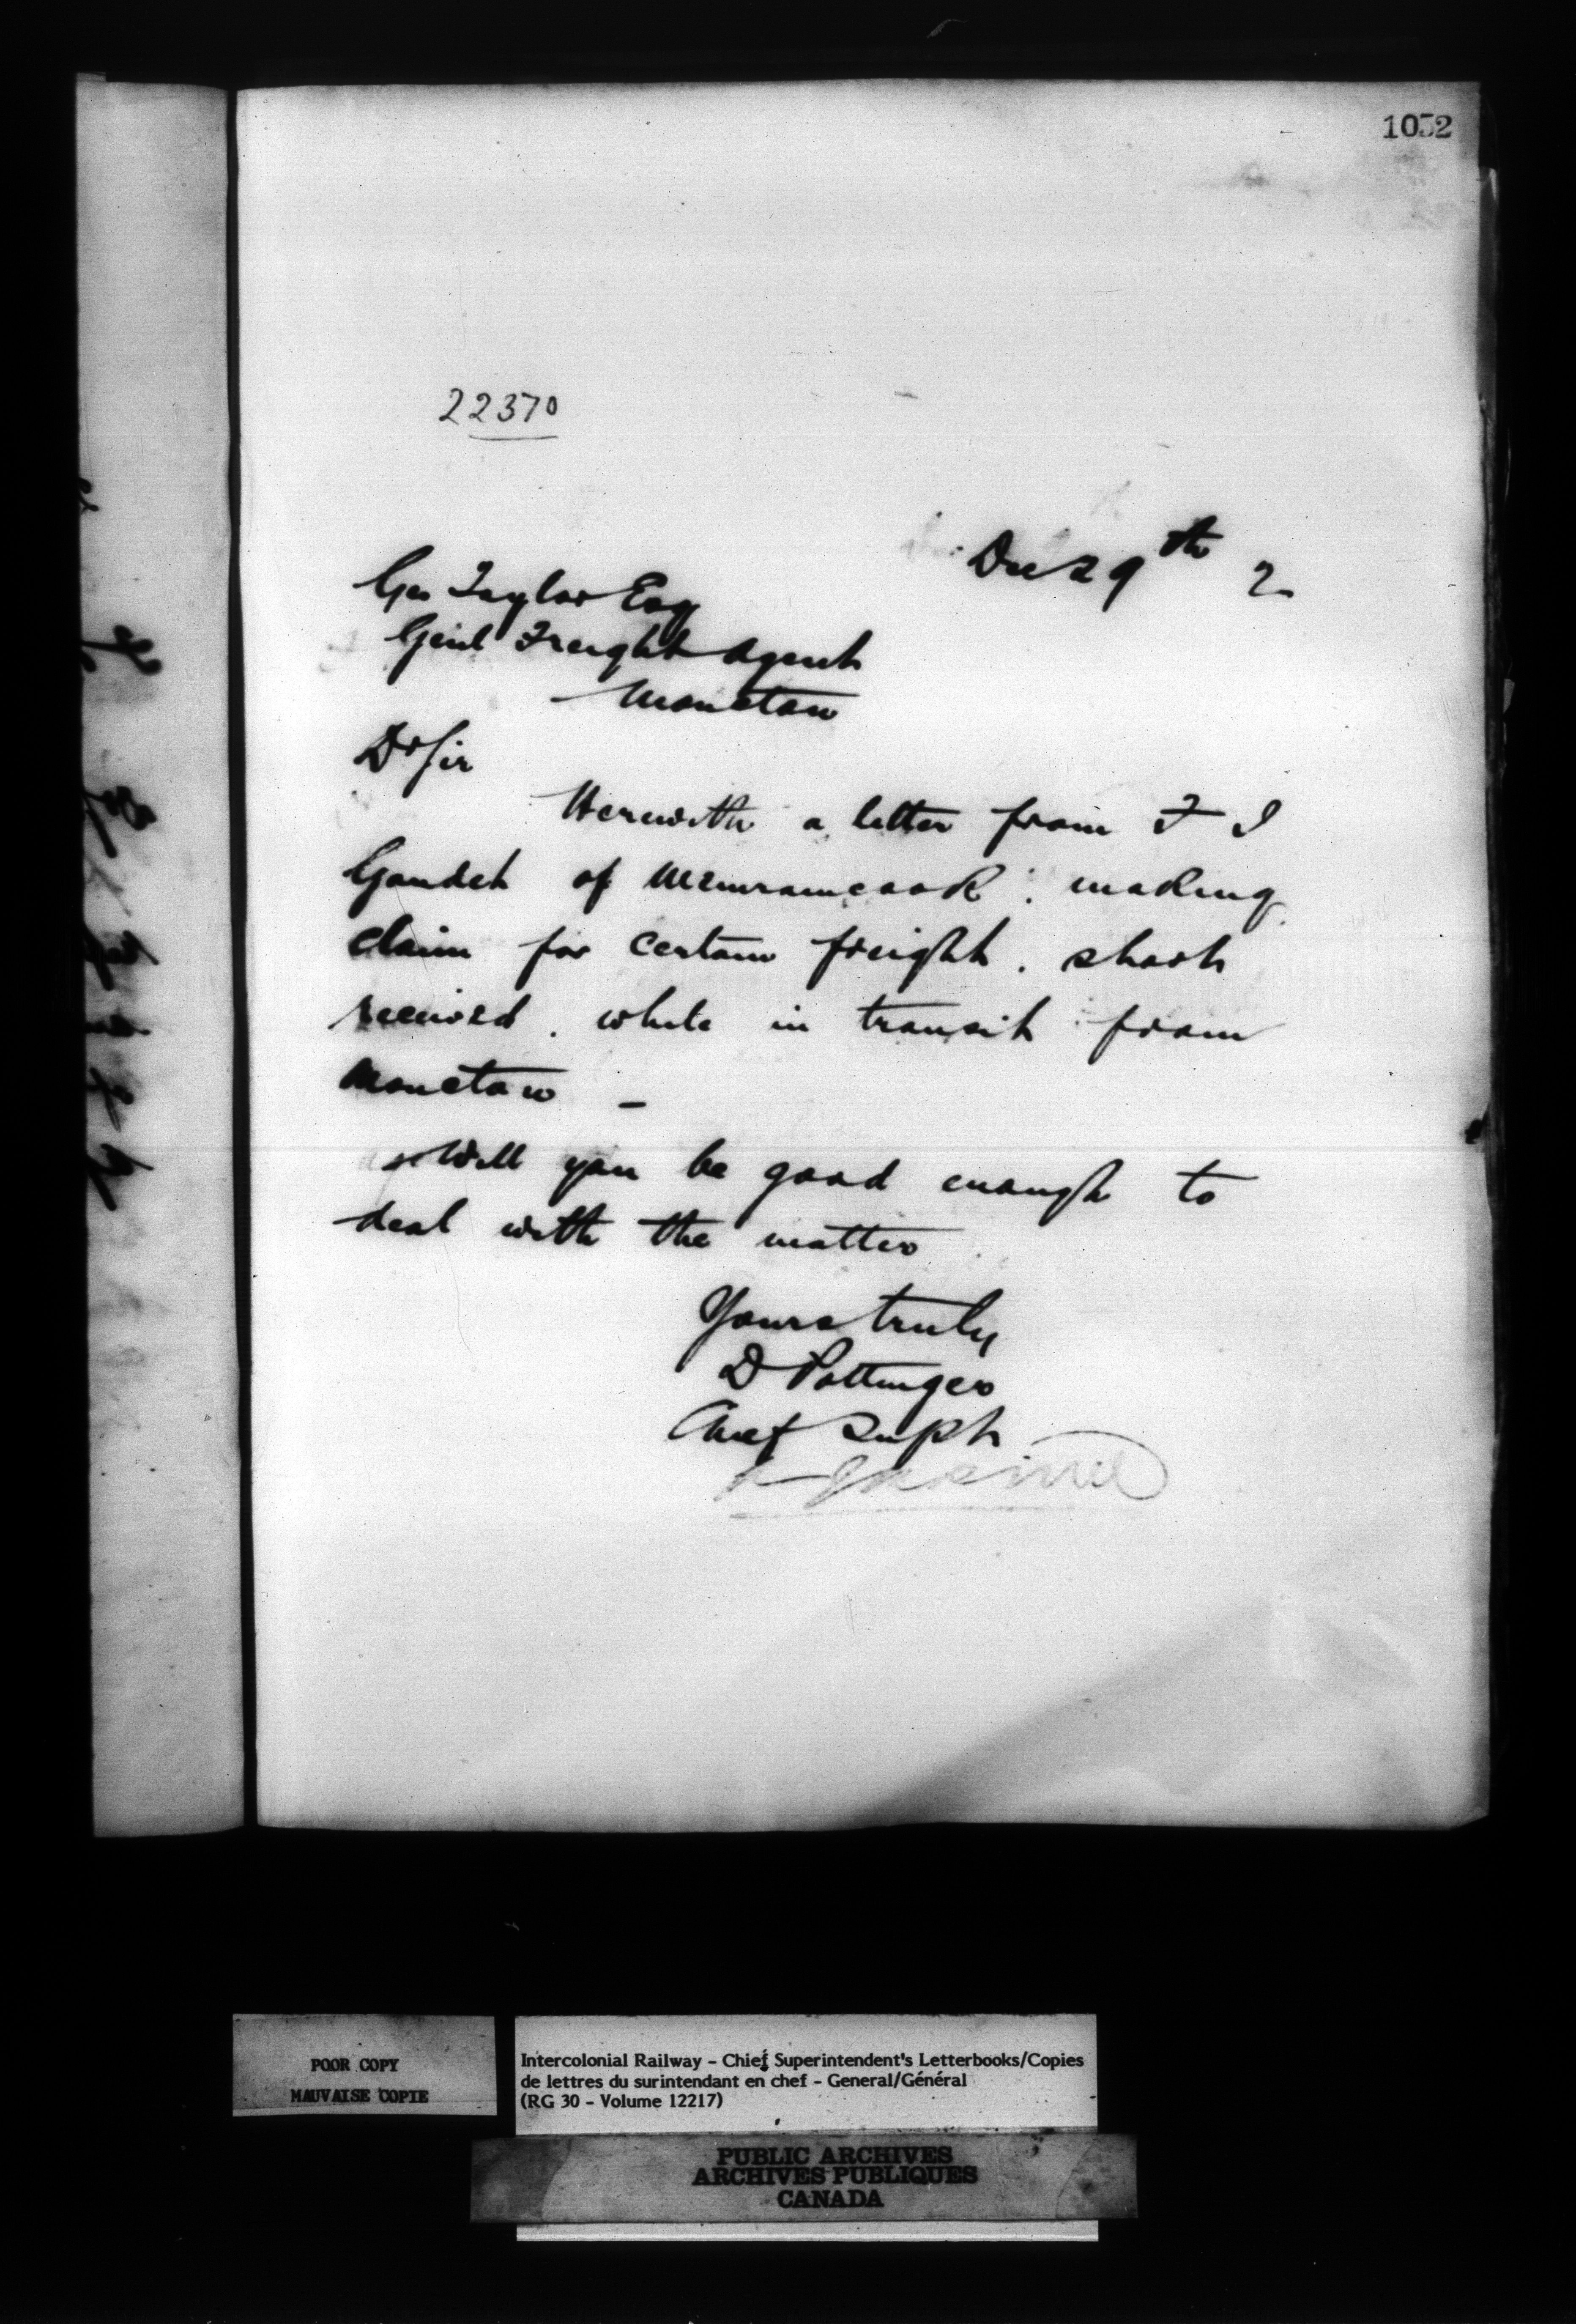 1032
22370
Dec 29th 2
Geo Taylor Esq
Genl Freight Agent
Moncton
Dr Sir
Herewith a letter from F J
Gaudet of Memramcook making
claim for certain freight. short
received. while in transit from
Moncton -
Will you be good enough to
deal with the matter
Yours truly
D Pottinger
Chief Supt
POOR COPY
MAUVAISE COPIE
Intercolonial Railway - Chief Superintendent's Letterbooks/Copies
de lettres du surintendant en chef - General/Général
(RG 30 - Volume 12217)
PUBLIC ARCHIVES
ARCHIVES PUBLIQUES
CANADA